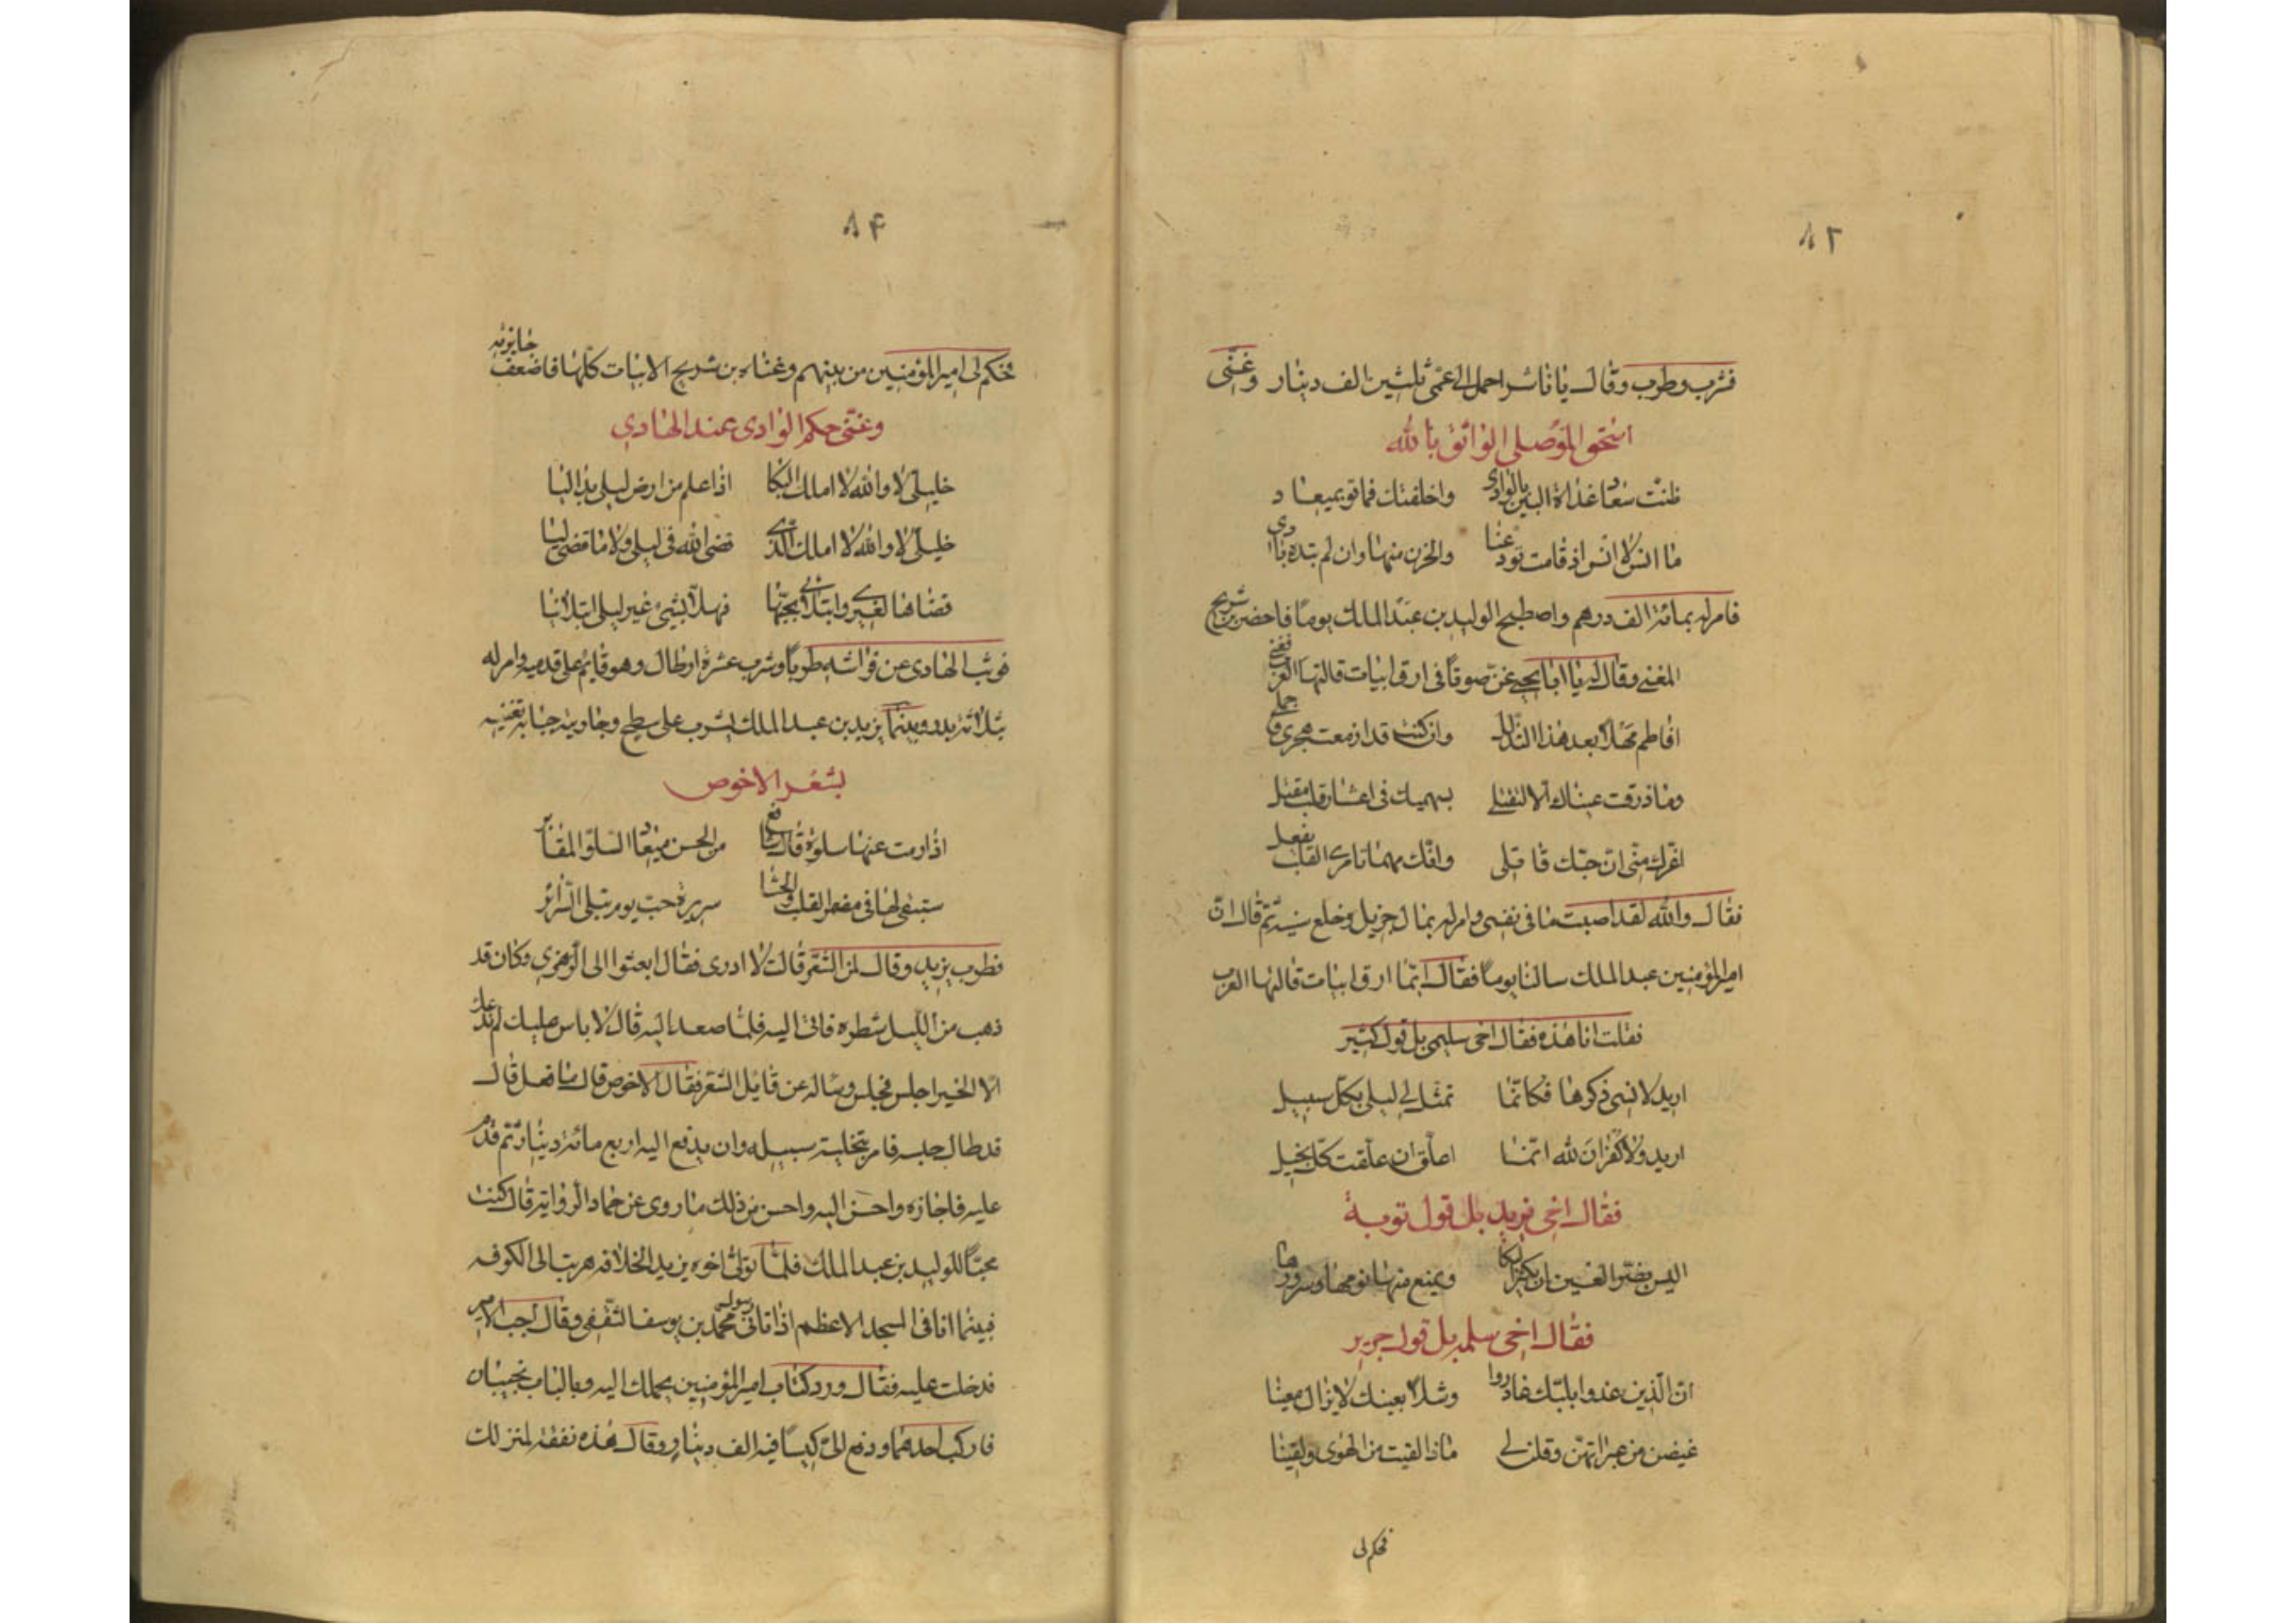 ٨٣
فشرب وطرب وقال يا ناشر احمل الى عمّى ثلثين الف دينار وغنّى
اسحق الموصلى الواثق بالله
ظنت سعاد غداة البين بالوادى واخلفتك فما توفى بميعاد
ما انس لا انس اذ قامت تودعنا والحزن منها وان لم تبده بادى
فامر له بمائة الف درهم واصطبح الوليد بن عبد الملك يوما فاحضر بن شريح
المغنى وقال له يا ابا يحيى غنّ صوتا فى ارق ابيات قالتها العرب فغنى
افاطم مهلا بعد هذا التدلل وان كنت قد ازمعت هجرى فاجملى
وما ذرفت عيناك الا لتقتلى بسهميك فى اعشار قلب مقتل
اغرك منّى ان حبّك قاتلى وانّك مهما تامرى القلب يفعل
فقال والله لقد اصبت ما فى نفسى وامر له بمال جزيل وخلع سنية ثم قال انّ
امير المؤمنين عبد الملك سالنا يوما فقال ايّما ارق ابيات قالتها العرب
فقلت انا هذه فقال اخى سليمى بل قول كثير
اريد لانسى ذكرها فكانّما تمثّل لى ليلى بكل سبيل
اريد ولا كفران لله انّما اعلّق ان علّقت كل بخيل
فقال اخى يزيد بل قول توبة
اليس يضر العين ان يكثر البكا ويمنع منها نومها وسرورها
فقال اخى سلمه بل قول جرير
انّ الّذين غدوا بلبّك غادروا وشلا بعينك لا يزال معينا
غيضن من عبراتهنّ وقلن لى ماذا لقيت من الهوى ولقينا
فحكم لى
٨۴
فحكم لى امير المؤمنين من بينهم وغناه بن شريح الابيات كلّها فاضعف جايزته
وغنّى حكم الوادى عند الهادي
خليلىّ لا والله لا املك البكا اذا علم من ارض ليلى بدا ليا
خليلىّ لا والله لا املك الّذى قضى الله فى ليلى ولا ما قضى ليا
قضاها لغيرى وابتلانى بحبّها فهلّا بشئ غير ليلى ابتلانيا
فوثب الهادى عن فراشه طربا وشرب عشرة ارطال وهو قايم على قدميه وامر له
بثلاثة بدر وبينما يزيد بن عبد الملك يشرب على سطح وجاريته حبابه تغنيه
بشعر الاخوص
اذا رمت عنها سلوة قال شافع من الحسن ميعاد السلوّ المقابر
ستبقى لها فى مضمر القلب والحشا سريرة حبّ يوم تبلى السّرائر
فطرب يزيد وقال لمن الشعر قالت لا ادرى فقال ابعثوا الى الزّهرى وكان قد
ذهب من اللّيل شطره فاتى اليه فلمّا صعد اليه قال لا باس عليك لم ندعك
الّا لخير اجلس فجلس وساله عن قايل الشعر فقال الاخوص قال ما فعل قال
قد طال حبسه فامر بتخلية سبيله وان يدفع اليه اربع مائة دينار ثم قدم
عليه فاجازه واحسن اليه واحسن من ذلك ما روى عن حماد الرّواية قال كنت
محبّا للوليد بن عبد الملك فلمّا تولى اخوه يزيد الخلافه هربت الى الكوفه
فبينما انا فى المسجد الاعظم اذ اتانى رسول محمد بن يوسف الثّقفى وقال اجب الامير
فدخلت عليه فقال ورد كتاب امير المؤمنين بحملك اليه وبالباب نجيبان
فاركب احدهما ودفع الىّ كيسا فيه الف دينار وقال هذه نفقة لمنزلك